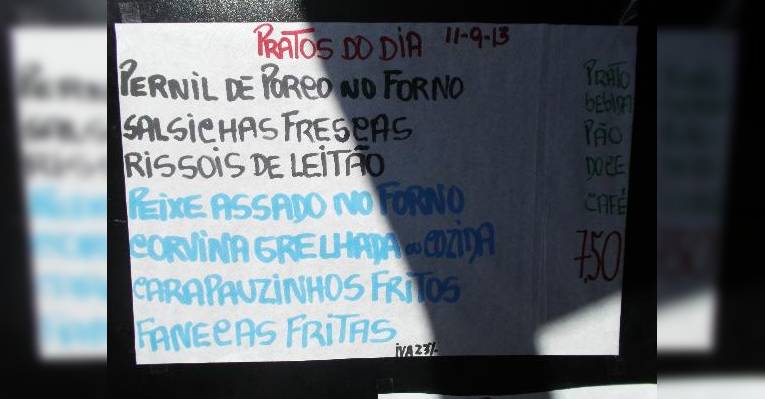 PRATOS DO DIA 11-9-13
PERNIL DE PORCO NO FORNO
SALSICHAS FRESCAS
RISSOIS DE LEITÃO
PEIXE ASSADO NO FORNO
CORVINA GRELHADA ou COZIDA
CARAPAUZINHOS FRITOS
FANECAS FRITAS
PRATO
BEBIDA
PÃO
DOCE
CAFÉ
7,50
IVA 23%